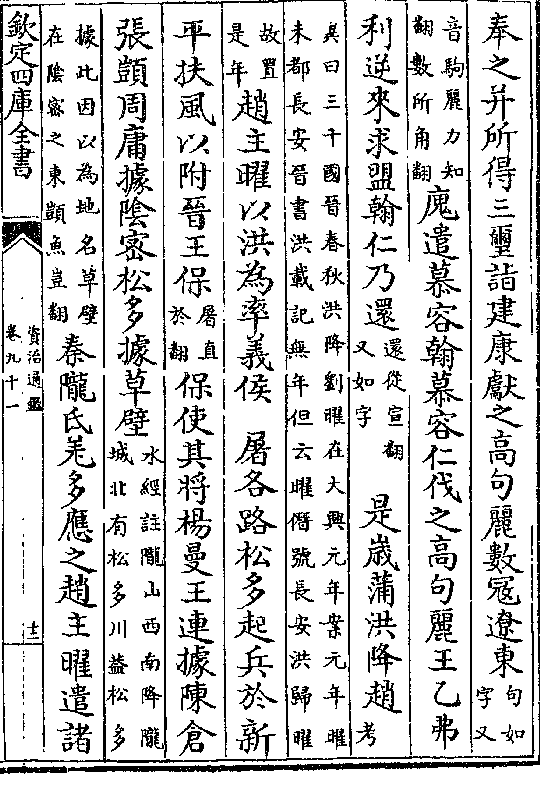 奉之并所得三璽詣建康獻之高句麗數寇遼東句如字又
音駒麗力知翻數所角翻廆遣慕容翰慕容仁伐之高句麗王乙弗
利逆來求盟翰仁乃還還從宣翻又如字 是歲蒲洪降趙考
異曰三十國晉春秋洪降劉曜在大興元年案元年曜
未都長安晉書洪載記無年但云曜僭號長安洪歸曜
故置是年趙主曜以洪為率義侯 屠各路松多起兵於新
平扶風以附晉王保屠直於翻保使其將楊曼王連據陳倉
張顗周庸據陰密松多據草壁水經註隴山西南降隴城北有松多川葢松多
據此因以為地名草壁在陰密之東顗魚豈翻秦隴氐羌多應之趙主曜遣諸
欽定四庫全書
資治通鑑
卷九十一